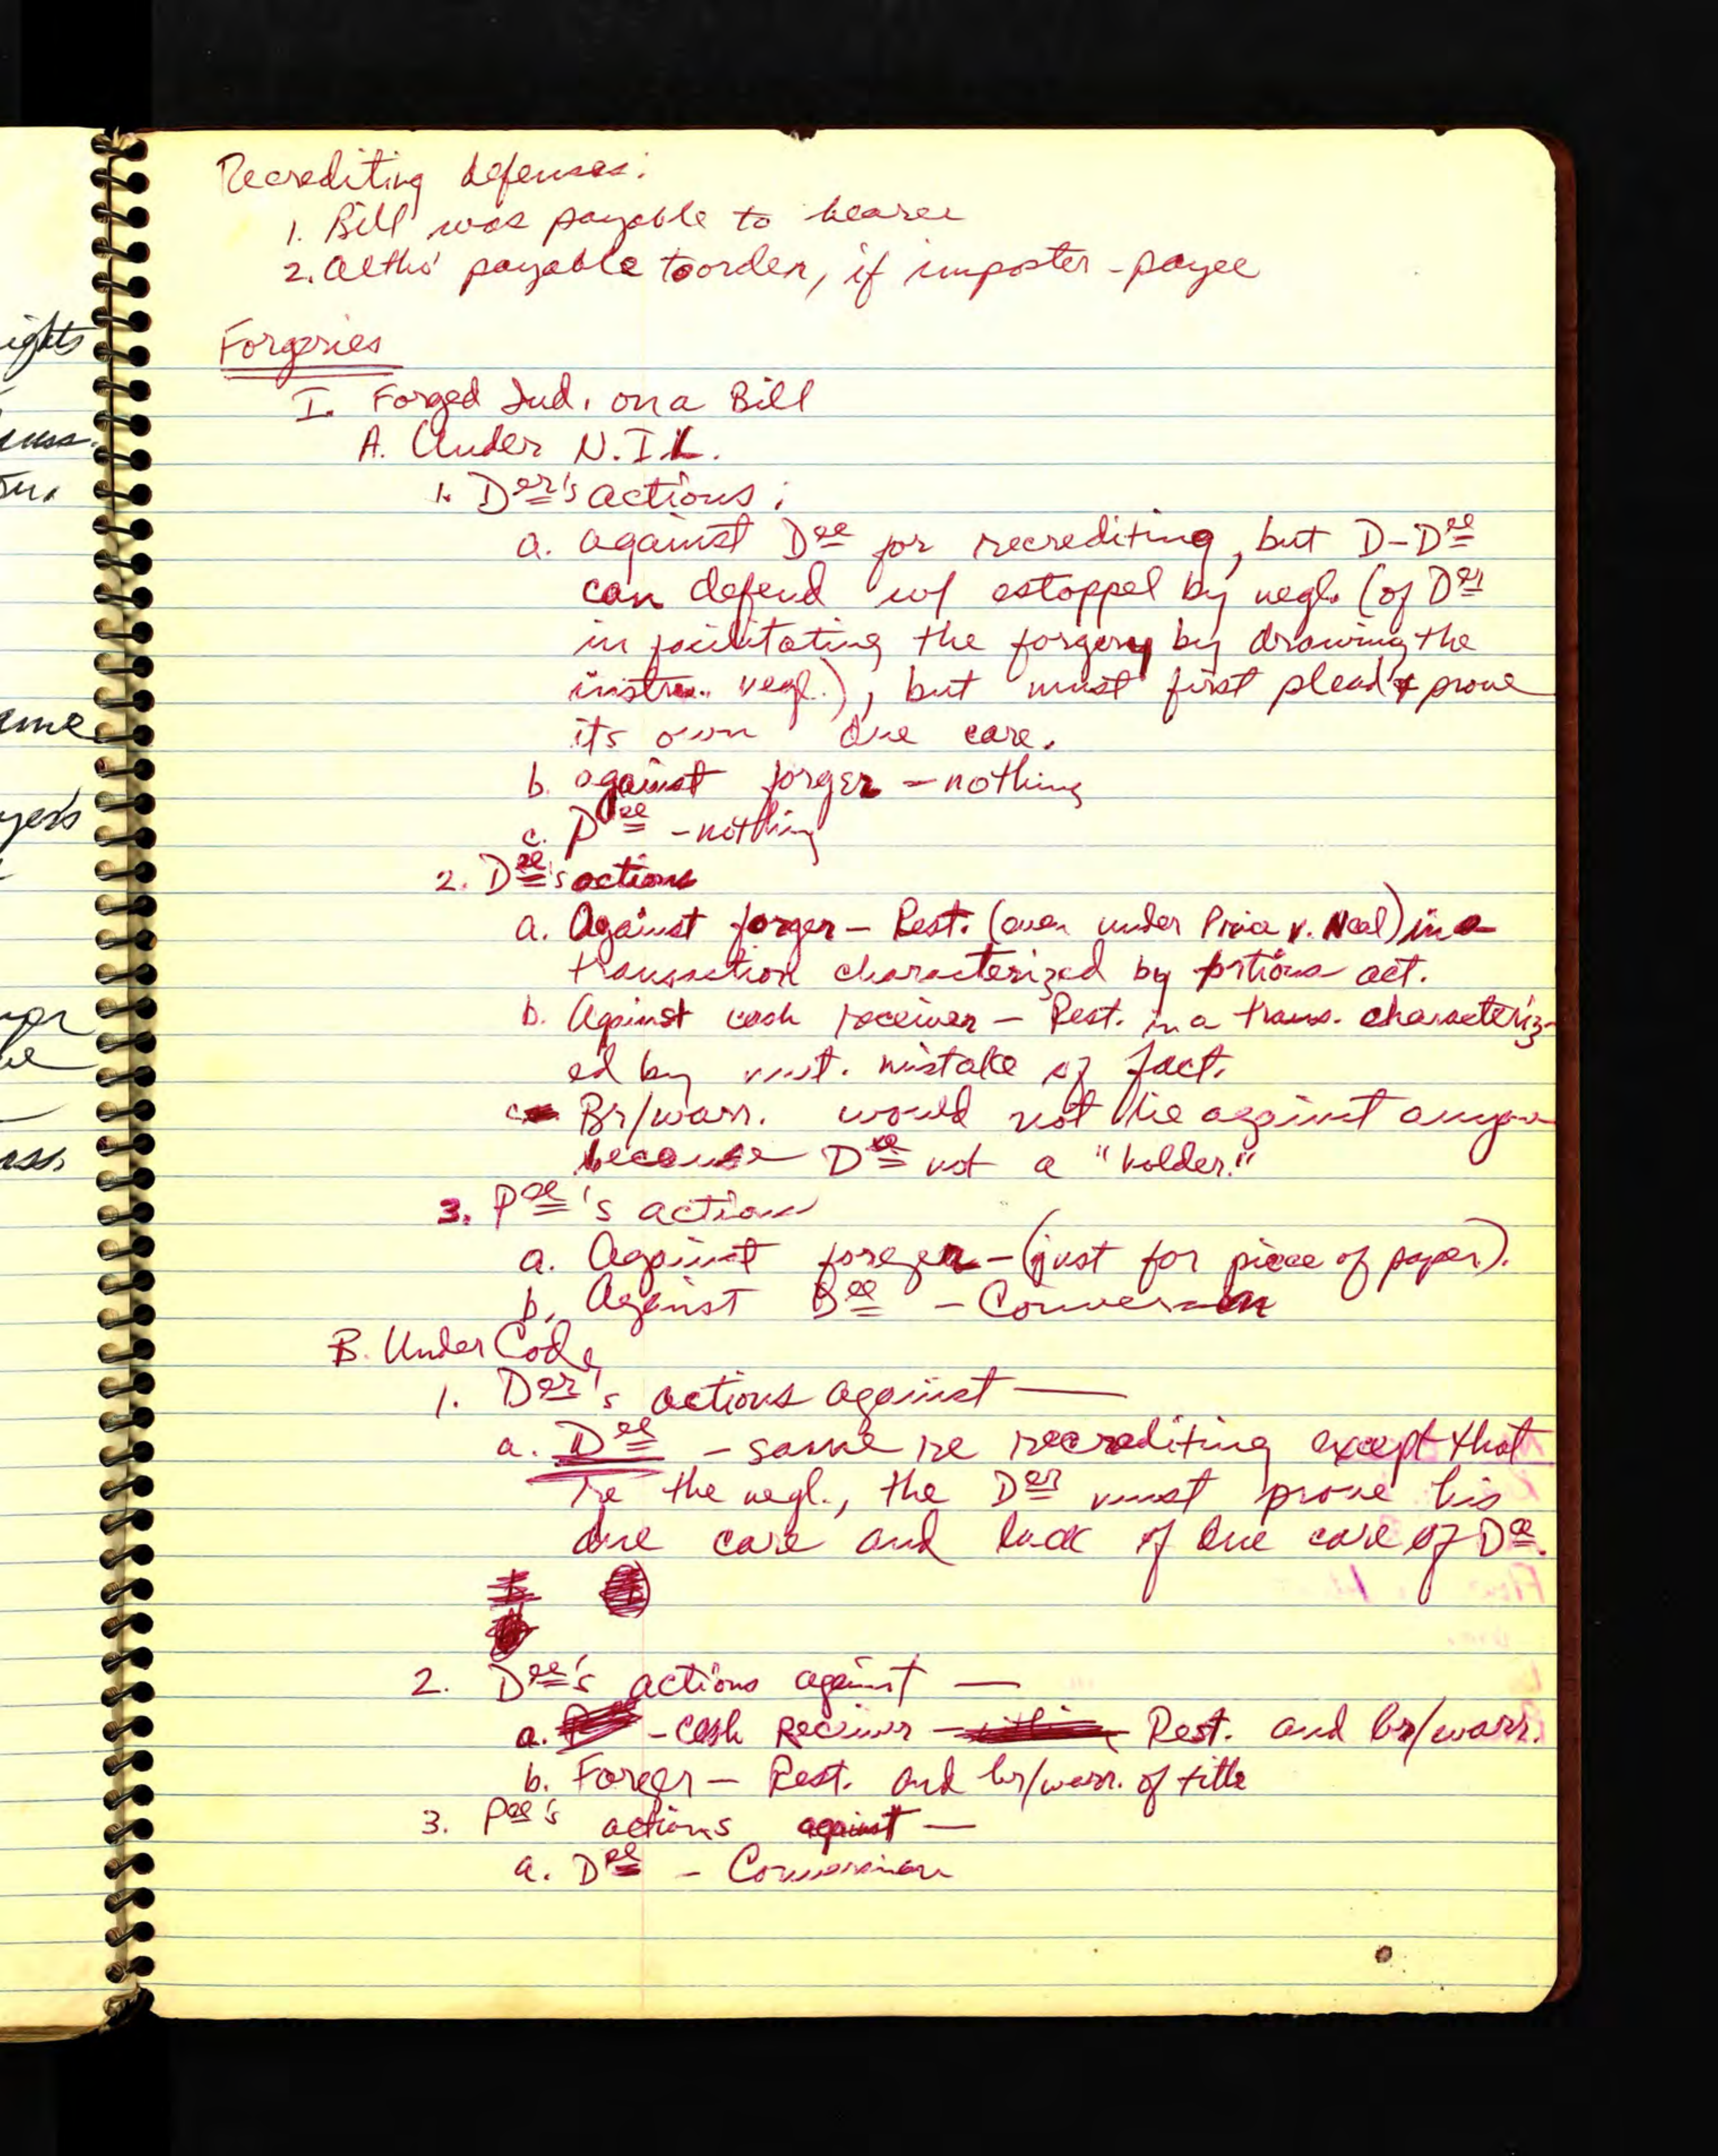 Recrediting defenses:
1. Bill was payable to bearer
2. Altho' payable to order, if imposter-payee
Forgeries
I. Forged Ind. on a Bill
A. Under N.I.L.
1. Der's actions:
a. against Dee for recrediting, but D-Dee
can defend w/ estoppel by negl. (of Der
in facilitating the forgery by drawing the
instru. negl.), but must first plead & prove
its own due care.
b. against forger - nothing
c. Pee - nothing
2. Dee's actions
a. Against forger - Rest. (even under Price v. Neal) in a
transaction characterized by tortious act.
b. Against cash receiver - Rest. in a trans. characteriz-
ed by mut. mistake of fact.
c. Br/warr. would not lie against anyone
because Dee not a "holder."
3. Pee's action
a. Against forger - (just for piece of paper).
b. Against Bee - Conversion
B. Under Code
1. Der's actions against —
a. Dee - same re recrediting except that
re the negl., the Der must prove his
due care and lack of due care of Dee.
2. Dee's actions against —
a. - cash receiver - Rest. and br/warr.
b. Forger - Rest. and br/warr. of title
3. Pee's actions against —
a. Dee - Conversion
ights
ame
yer's